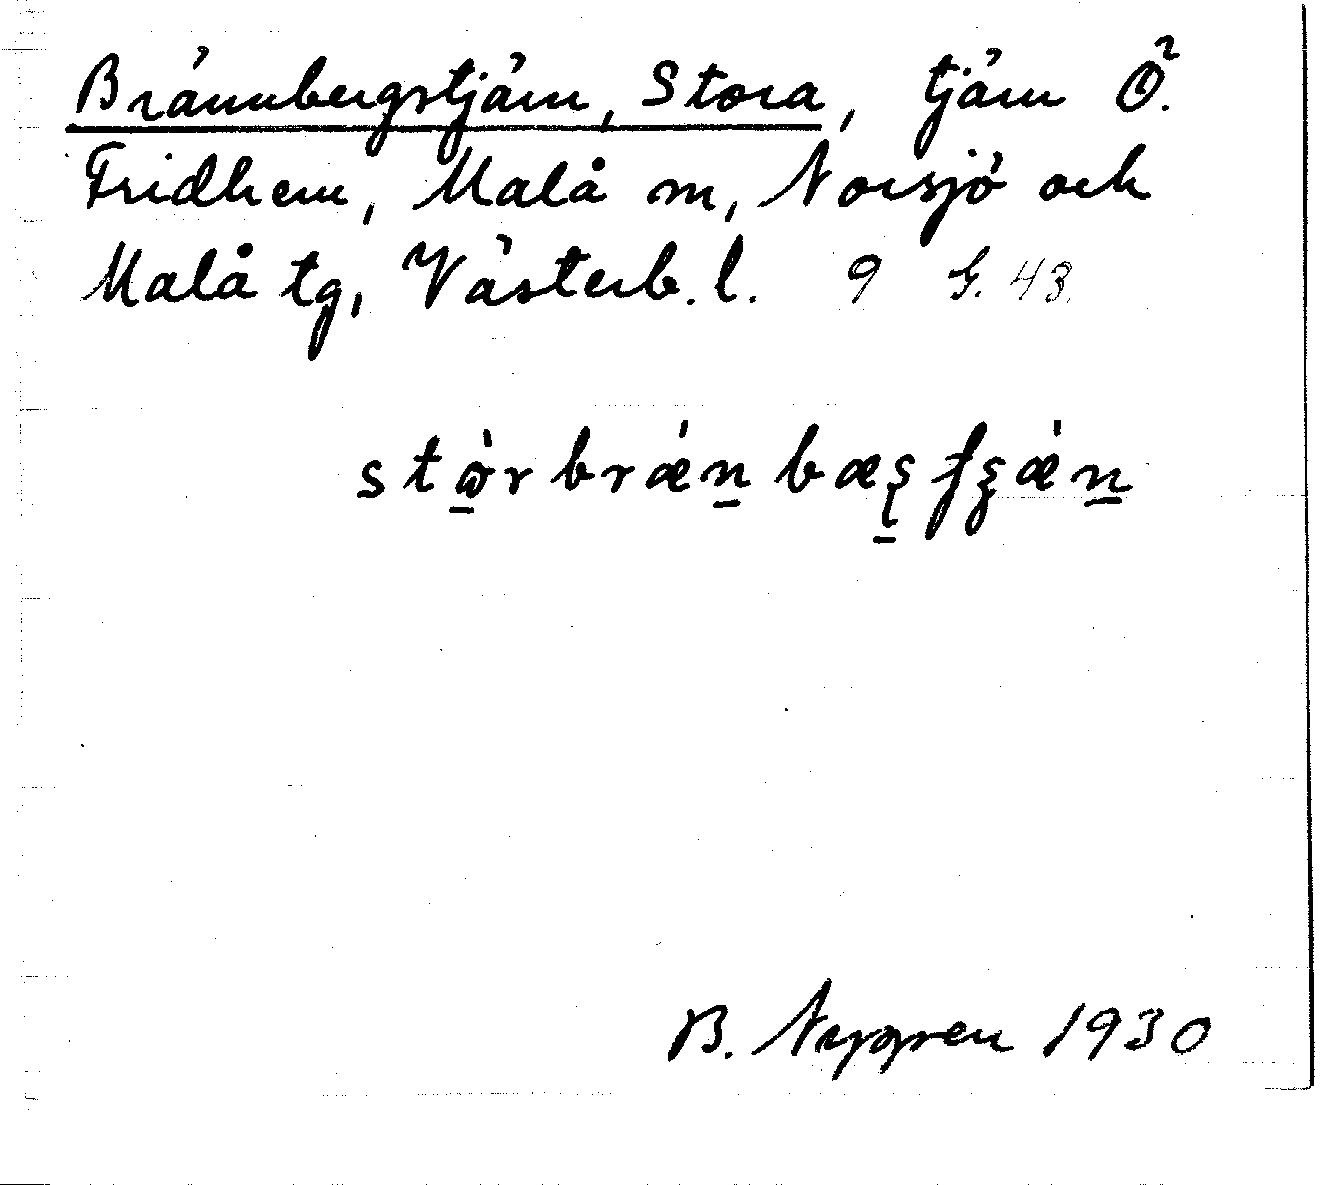 Brännbergstjärn, Stora, tjärn Ö.
Fridhem, Malå sn, Norsjö och
Malå tg, Västerb. l. 9 G. 43.
B. Nygren 1930